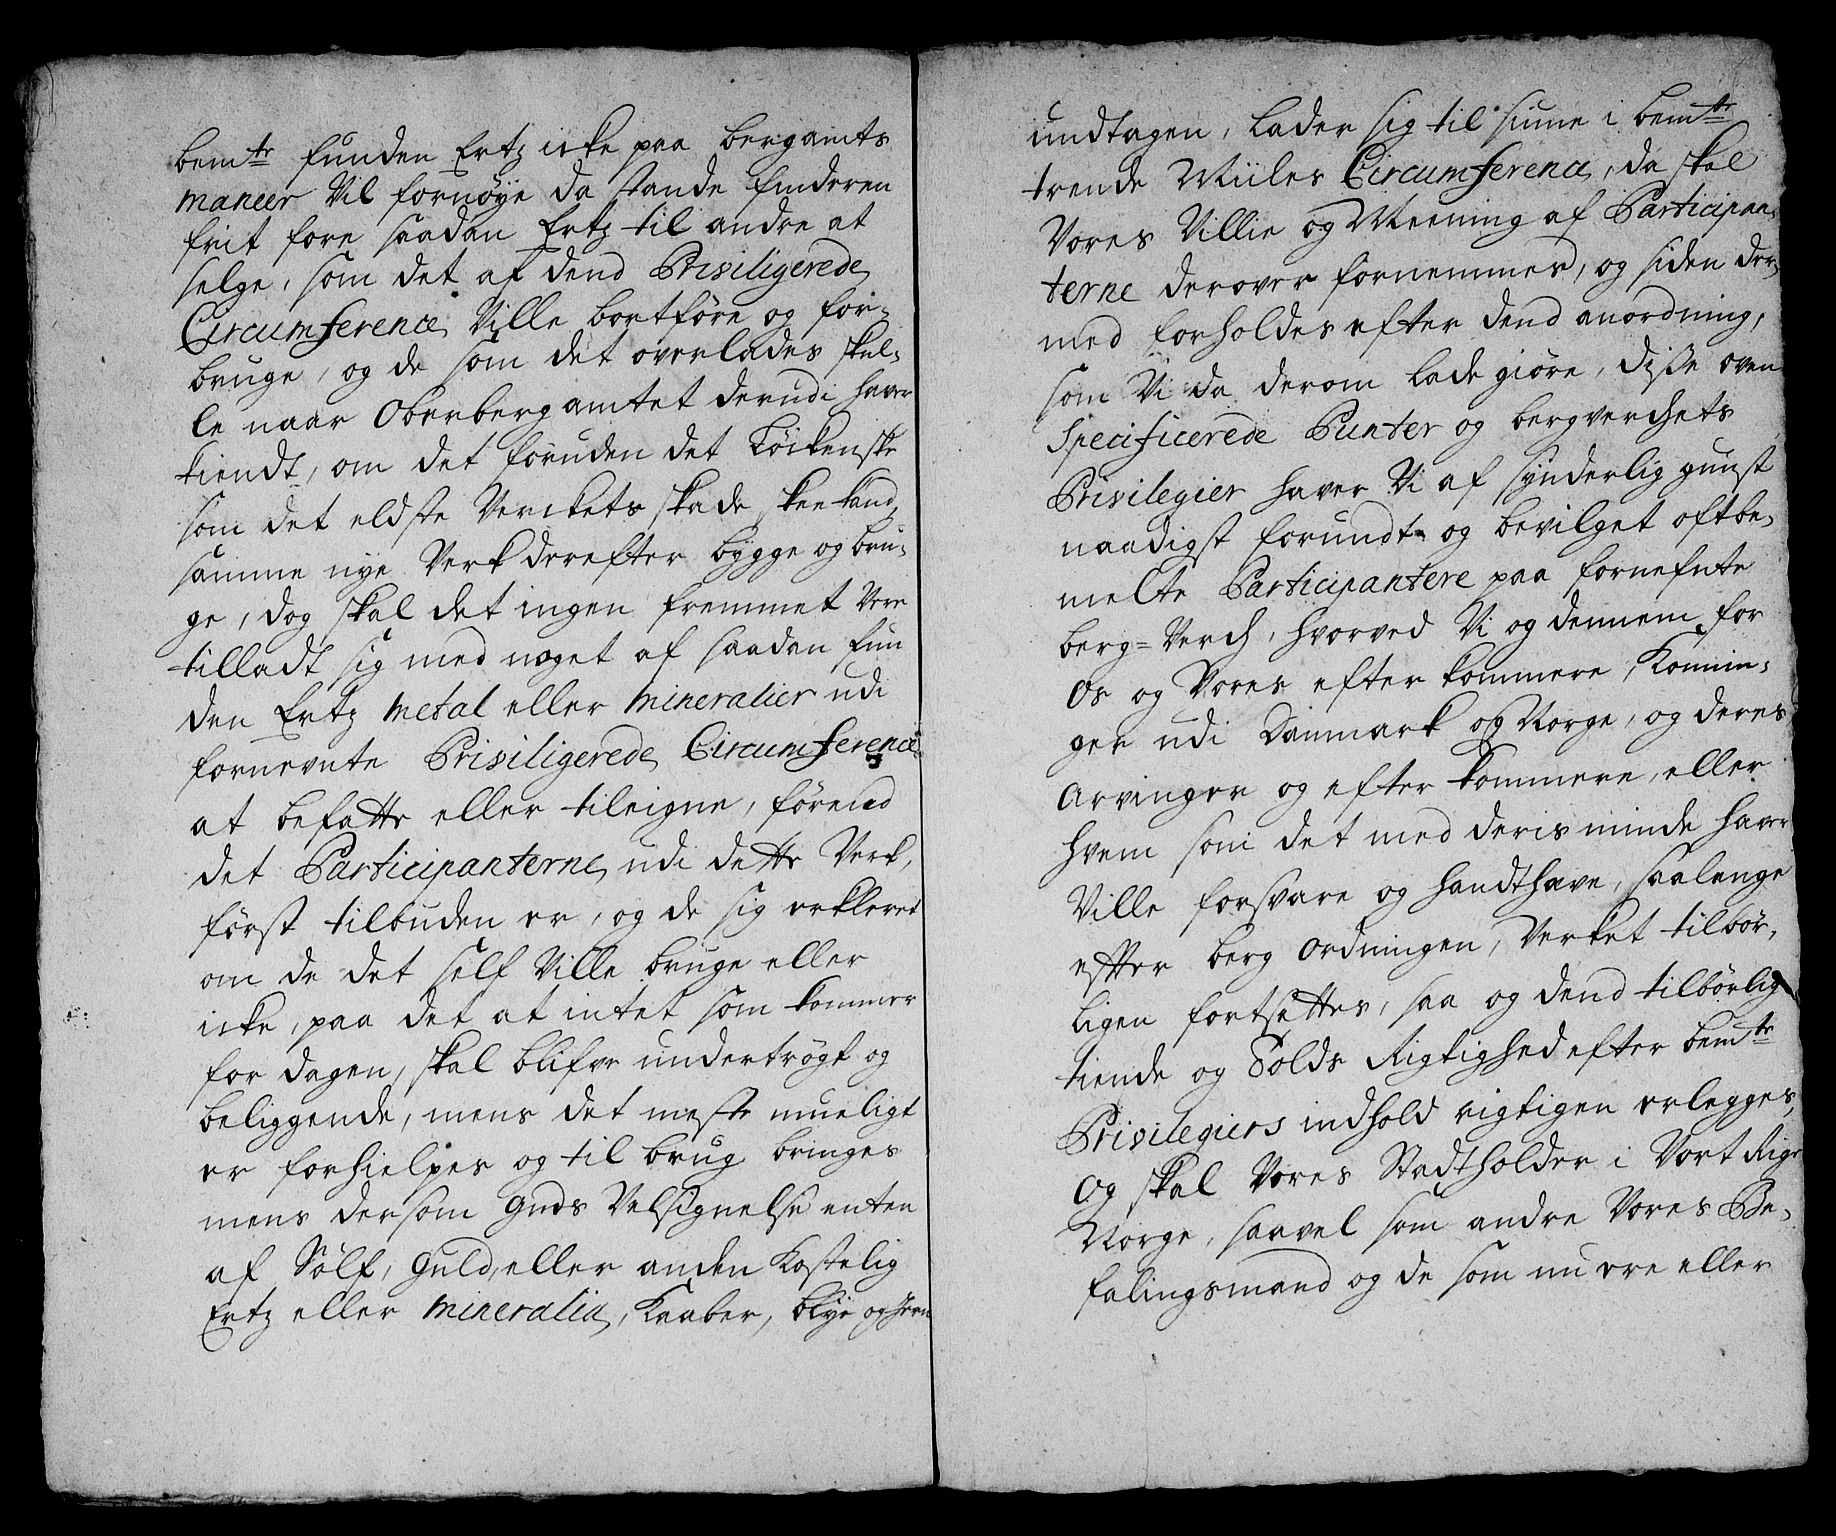 bemte funden Ertz icke paa bergamts
maneer Vil fornøye da stande finderen
frit fore saadan Ertz til andre at
selge, som det af dend Privilegerede
Circumference Ville bortføre og for-
bruge, og de som det overlades skul-
le naar Oberbergamtet derudi haver
kiendt, om det foruden det Løkenske
som det eldste Verckets skade skee kand,
samme nye Verk derefter bygge og bru-
ge, dog skal det ingen fremmet Vere
tilladt sig med noget af saadan fun
den Ertz metal eller mineralier udi
fornevnte Privilegerede Circumference
at befatte eller tileigne, førend
det Participanterne udi dette Verk,
først tilbuden er, og de sig erkleret
om de det self Ville bruge eller
icke, paa det at intet som kommer
for dagen, skal blifve undertrögt og
beliggende, mens det meste mueligt
er forhielpes og til brug bringes
mens dersom Guds Velsignelse enten
af Sølf, Guld, eller anden Kostelig
Ertz eller mineralia, Kaaber, blye og Jern
undtagen, lader sig til siune i bemte
trende Miiles Circumference, da skal
Vores Villie og Meening af Participan-
terne derover fornemmes, og siden der
med forholdes efter dend anordning,
som Vi da derom lade giøre, disse oven
Specificerede Puncter og bergverchets
Privilegier haver Vi af synderlig gunst
naadigst forundt og bevilget oftbe-
melte Participantere paa fornefnte
berg=Verch, hvorved Vi og dennem for
Os og Vores efterkommere, Konnin-
ger udi Danmark og Norge, og deres
Arvinger og efterkommere, eller
hvem som det med deris minde haver
Ville forsvare og handthave, saalenge
efter berg Ordningen, Verket tilbør-
ligen fortsettes, saa og dend tilbørlig
tiende og Tolds Rigtighed efter bemte
Privilegiers indhold rigtigen erlegges,
Og skal Vores Stadtholder i Vort Rige
Norge, saavel som andre Vores Be-
falingsmænd og de som nu ere eller